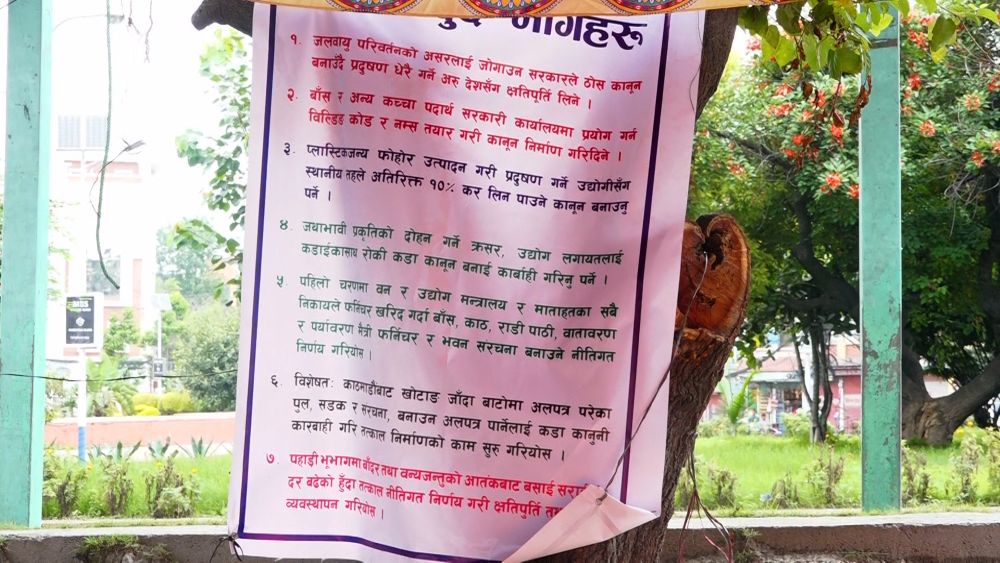 मागहरू
१. जलवायु परिवर्तनको असरलाई जोगाउन सरकारले ठोस कानून
बनाउँदै प्रदुषण धेरै गर्ने अरु देशसँग क्षतिपूर्ति लिने ।
२. बाँस र अन्य कच्चा पदार्थ सरकारी कार्यालयमा प्रयोग गर्न
विल्डिङ कोड र नम्स तयार गरी कानून निर्माण गरिदिने ।
३. प्लास्टिकजन्य फोहोर उत्पादन गरी प्रदुषण गर्ने उद्योगीसँग
स्थानीय तहले अतिरिक्त १०% कर लिन पाउने कानून बनाउनु
पर्ने ।
४. जथाभावी प्रकृतिको दोहन गर्ने क्रसर, उद्योग लगायतलाई
कडाईकासाथ रोकी कडा कानून बनाई कार्बाही गरिनु पर्ने ।
५. पहिलो चरणमा वन र उद्योग मन्त्रालय र मातहतका सबै
निकायले फर्निचर खरिद गर्दा बाँस, काठ, राडी पाठी, वातावरण
र पर्यावरण मैत्री फर्निचर र भवन संरचना बनाउने नीतिगत
निर्णय गरियोस ।
६. विशेषतः काठमाडौबाट खोटाङ जाँदा बाटोमा अलपत्र परेका
पुल, सडक र संरचना, बनाउन अलपत्र पार्नेलाई कडा कानुनी
कारबाही गरि तत्काल निर्माणको काम सुरु गरियोस ।
७. पहाडी भूभागमा बाँदर तथा वन्यजन्तुको आतंकबाट बसाई
दर बढेको हुँदा तत्काल नीतिगत निर्णय गरी क्षतिपुर्ति
व्यवस्थापन गरियोस ।